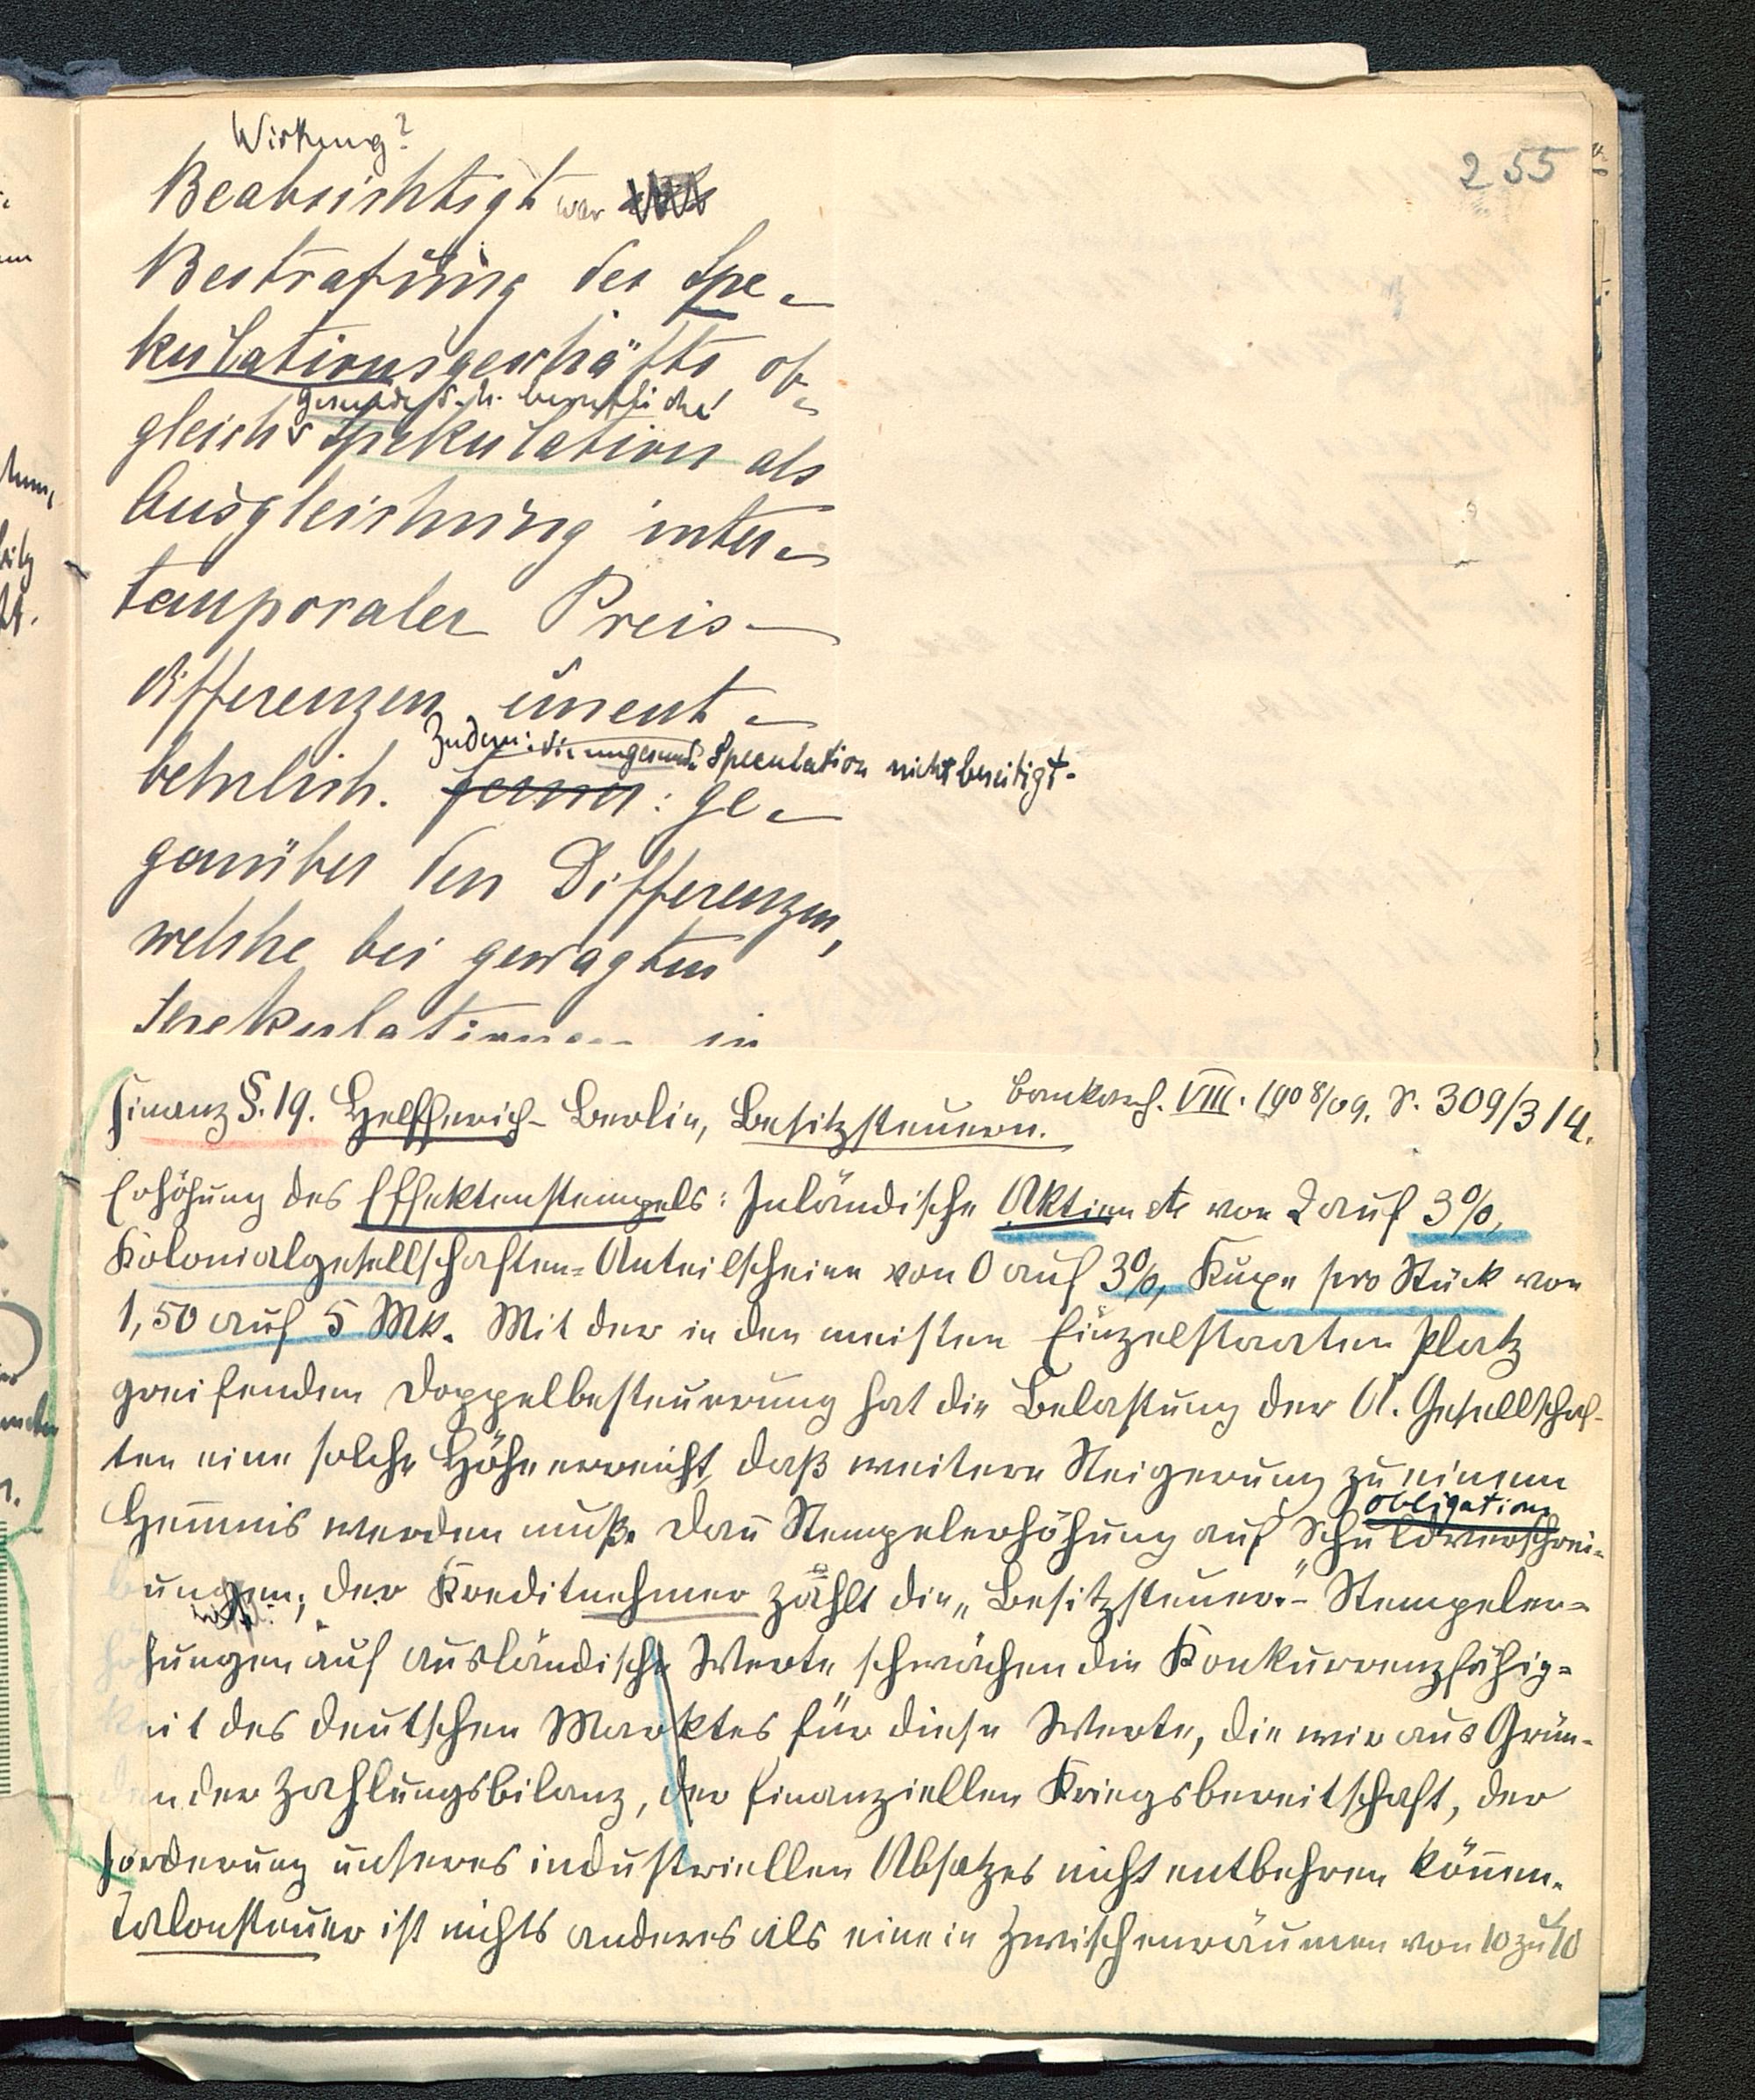 255
Wirkung?
Beabsichtigt war
Bestrafung der Spe-
kulationsgeschäfte ob-
gesunde d. h. berufliche!
gleich Spekulation als
Ausgleichung inter-
temporaler Preis-
differenzen unent-
Zudem: die ungesunde Speculation nicht beseitigt.
behrlich. ferner: ge-
genüber den Differenzen,
welche bei gewagten
Spekulationen in
Finanz §. 19. Helfferich-Berlin, Besitzsteuern. Bankarch. VIII. 1908/09. S. 309/314.
Erhöhung des Effektenstempels: Inländische Aktien etc von 2 auf 3%,
Kolonialgesellschaften-Anteilscheine von 0 auf 3%, Kuxe pro Stück von
1,50 auf 5 Mk. Mit der in den meisten Einzelstaaten Platz
greifenden Doppelbesteuerung hat die Belastung der A. Gesellschaf-
ten eine solche Höhe erreicht, daß weitere Steigerung zu einem
Obligation
Hemnis werden muß. Dañ Stempelerhöhung auf Schuldverschrei-
bungen; der Kreditnehmer zahlt die „Besitzsteuer." - Stempeler-
höhungen auf ausländische Werte schwächen die Konkurrenzfähig-
keit des deutschen Marktes für diese Werte, die wir aus Grün-
den der Zahlungsbilanz, der finanziellen Kriegsbereitschaft, der
Förderung unseres industriellen Absatzes nicht entbehren köñen.
Talonsteuer ist nichts anderes als eine in Zwischenräumen von 10 zu 10